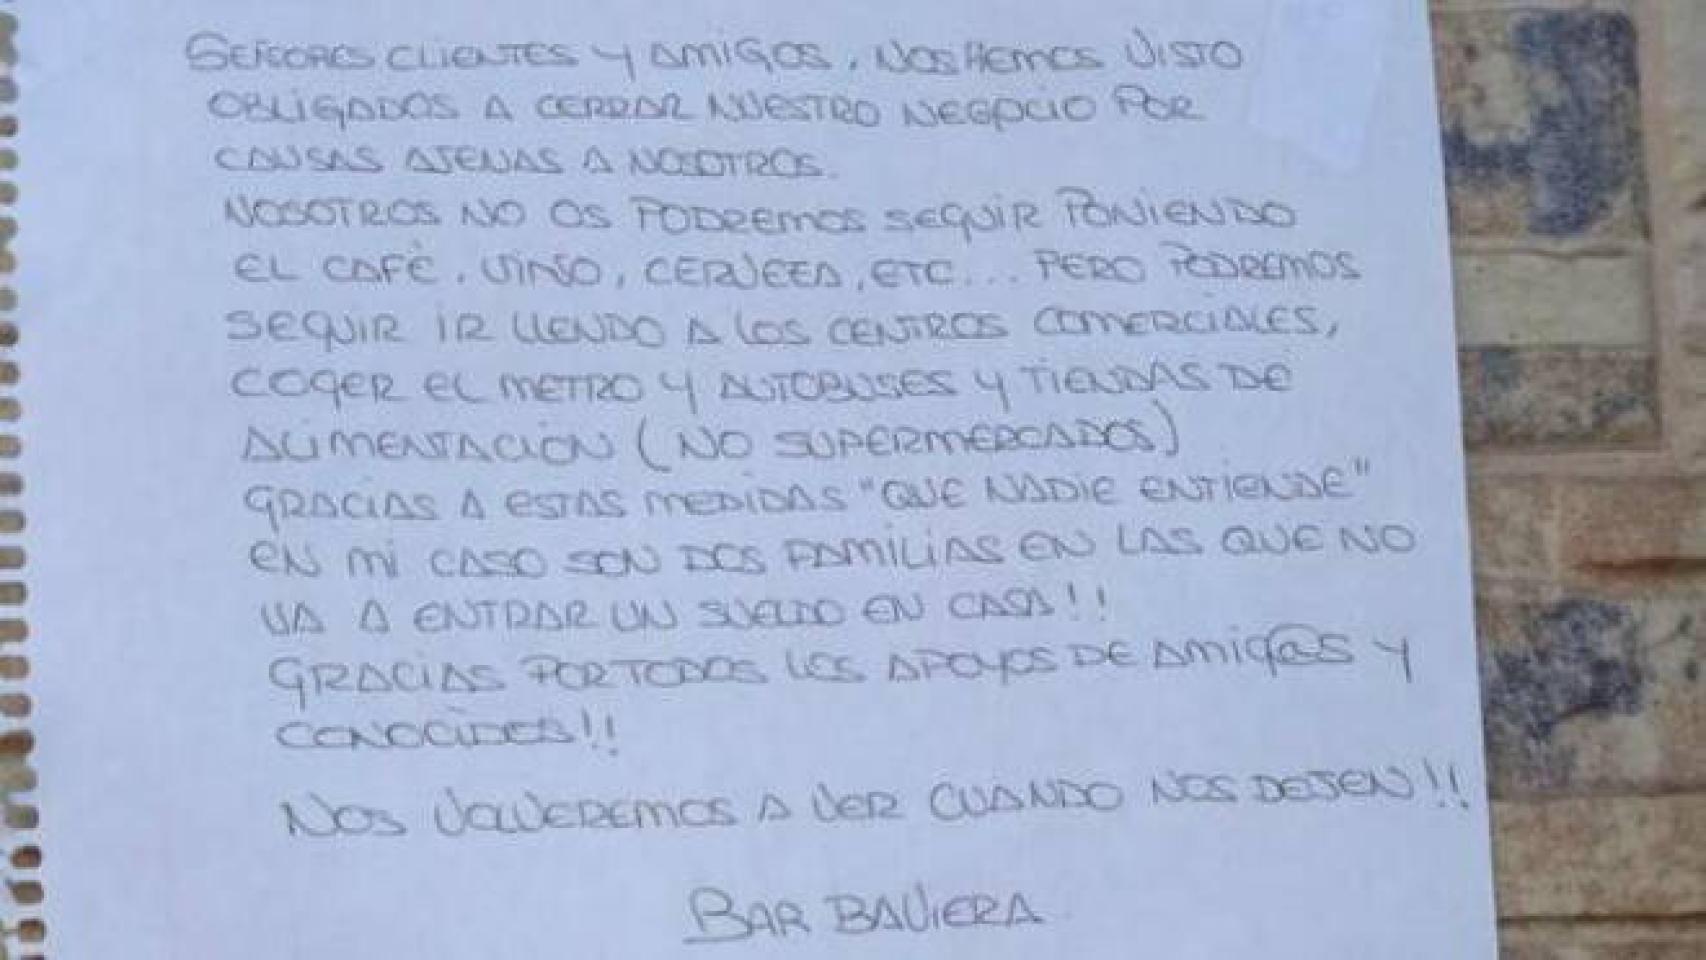 SEÑORES CLIENTES Y AMIGOS, NOS HEMOS VISTO
OBLIGADOS A CERRAR NUESTRO NEGOCIO POR
CAUSAS AJENAS A NOSOTROS.
NOSOTROS NO OS PODREMOS SEGUIR PONIENDO
EL CAFÉ, VINO, CERVEZA, ETC... PERO PODREMOS
SEGUIR IR LLENDO A LOS CENTROS COMERCIALES,
COGER EL METRO Y AUTOBUSES Y TIENDAS DE
ALIMENTACIÓN (NO SUPERMERCADOS)
GRACIAS A ESTAS MEDIDAS "QUE NADIE ENTIENDE"
EN MI CASO SON DOS FAMILIAS EN LAS QUE NO
VA A ENTRAR UN SUELDO EN CASA!!
GRACIAS POR TODOS LOS APOYOS DE AMIG@S Y
CONOCIDOS!!
NOS VOLVEREMOS A VER CUANDO NOS DEJEN!!
BAR BAVIERA